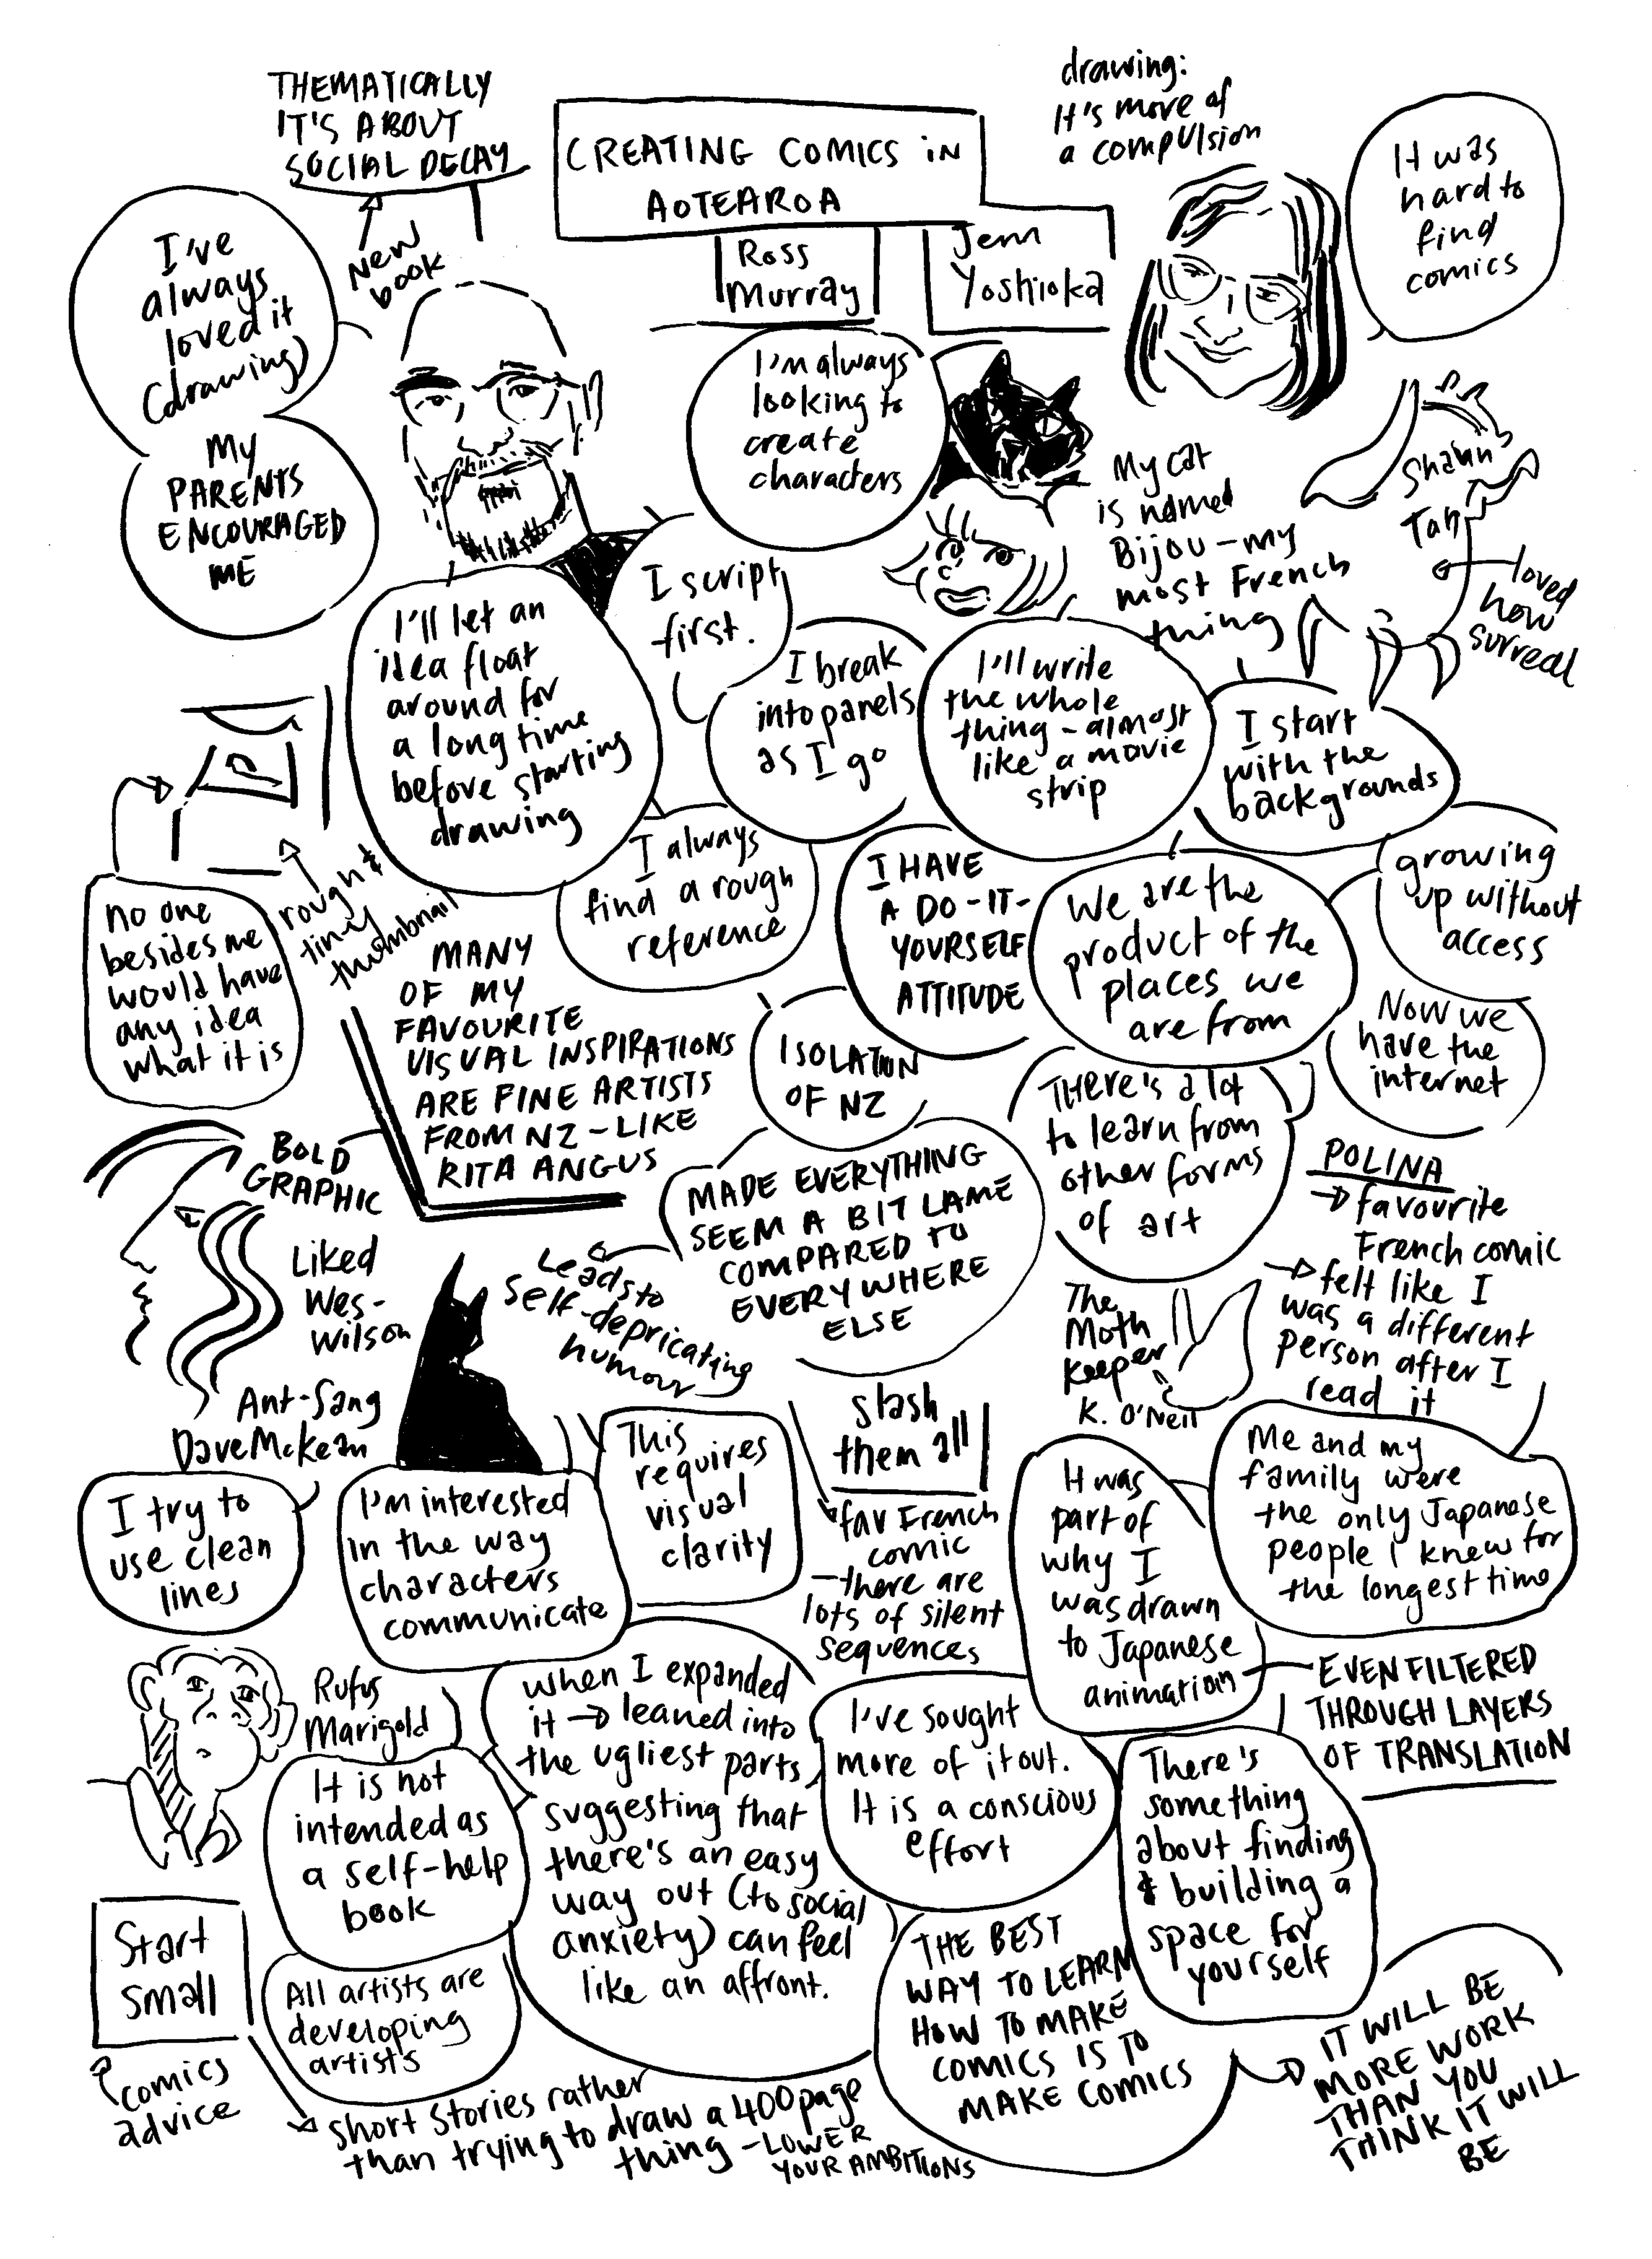 THEMATICALLY
IT'S ABOUT
SOCIAL DECAY
New
book
CREATING COMICS iN
AOTEAROA
Ross
Murray
Jem
Yoshioka
drawing:
It's more of
a compulsion
It was
hard to
find
comics
I've
always
loved it
(drawing)
My
PARENTS
ENCOURAGED
ME
I'm always
looking to
create
characters
My cat
is named
Bijou - my
most French
thing
Shaun
Tan
loved
how
surreal
I'll let an
idea float
around for
a long time
before starting
drawing
I script
first.
I break
into panels
as I go
I'll write
the whole
thing - almost
like a movie
strip
I start
with the
backgrounds
no one
besides me
would have
any idea
what it is
rough &
tiny
thumbnail
I always
find a rough
reference
I HAVE
A DO-IT-
YOURSELF
ATTITUDE
We are the
product of the
places we
are from
growing
up without
access
Now we
have the
internet
MANY
OF MY
FAVOURITE
VISUAL INSPIRATIONS
ARE FINE ARTISTS
FROM NZ - LIKE
RITA ANGUS
BOLD
GRAPHIC
ISOLATION
OF NZ
MADE EVERYTHING
SEEM A BIT LAME
COMPARED TO
EVERYWHERE
ELSE
Leads to
self-depricating
humour
THERE's a lot
to learn from
other forms
of art
POLINA
favourite
French comic
felt like I
was a different
person after I
read it
The
Moth
Keeper
K. O'Neil
Liked
Wes-
Wilson
Ant-Sang
Dave McKean
I try to
use clean
lines
I'm interested
in the way
characters
communicate
This
requires
visual
clarity
slash
them all
fav French
comic
- there are
lots of silent
sequences
It was
part of
why I
was drawn
to Japanese
animation
Me and my
family were
the only Japanese
people I knew for
the longest time
EVEN FILTERED
THROUGH LAYERS
OF TRANSLATION
Rufus
Marigold
It is not
intended as
a self-help
book
when I expanded
it → leaned into
the ugliest parts
suggesting that
there's an easy
way out (to social
anxiety) can feel
like an affront.
I've sought
more of it out.
It is a conscious
effort
There's
something
about finding
& building a
space for
yourself
Start
small
comics
advice
All artists are
developing
artists
short stories rather
than trying to draw a 400 page
thing - LOWER
YOUR AMBITIONS
THE BEST
WAY TO LEARN
HOW TO MAKE
COMICS IS TO
MAKE COMICS
IT WILL BE
MORE WORK
THAN YOU
THINK IT WILL
BE